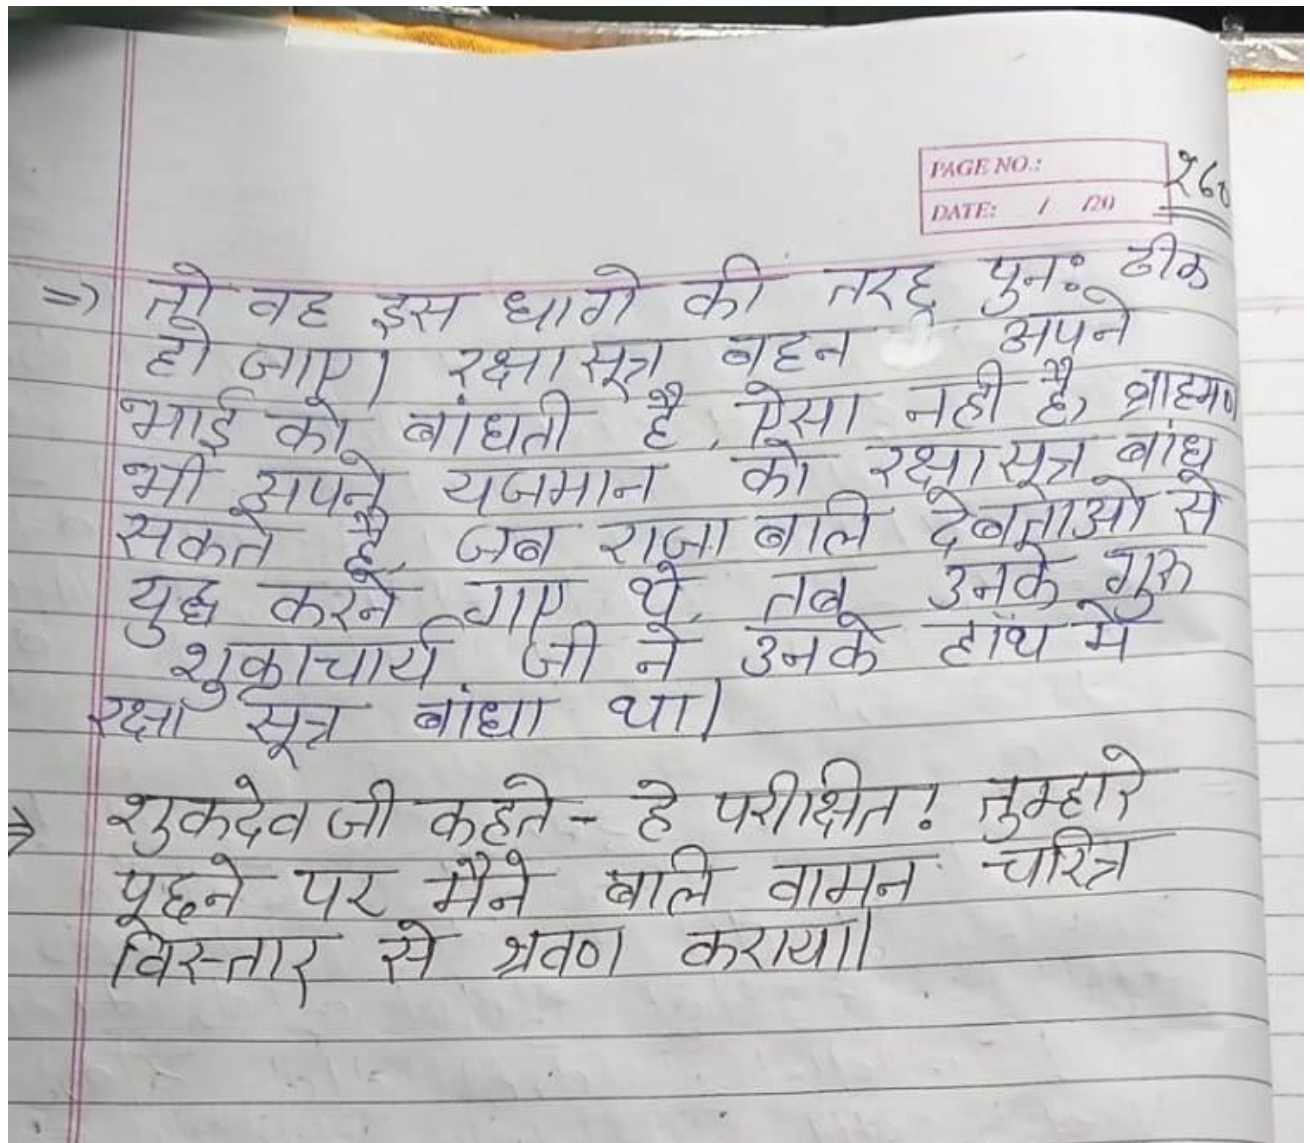 PAGE NO.:
DATE: / /20
२६०
=> तो वह इस धागे की तरह पुनः ठीक
हो जाए। रक्षासूत्र बहन अपने
भाई को बांधती है, ऐसा नही है, ब्राह्मण
भी अपने यजमान को रक्षासूत्र बांध
सकते है, जब राजा बालि देवताओ से
युद्ध करने गए थे, तब उनके गुरु
शुक्राचार्य जी ने उनके हाँथ मे
रक्षा सूत्र बांधा था।
=> शुकदेव जी कहते - हे परीक्षित! तुम्हारे
पूछने पर मैने बालि वामन चरित्र
विस्तार से श्रवण कराया।